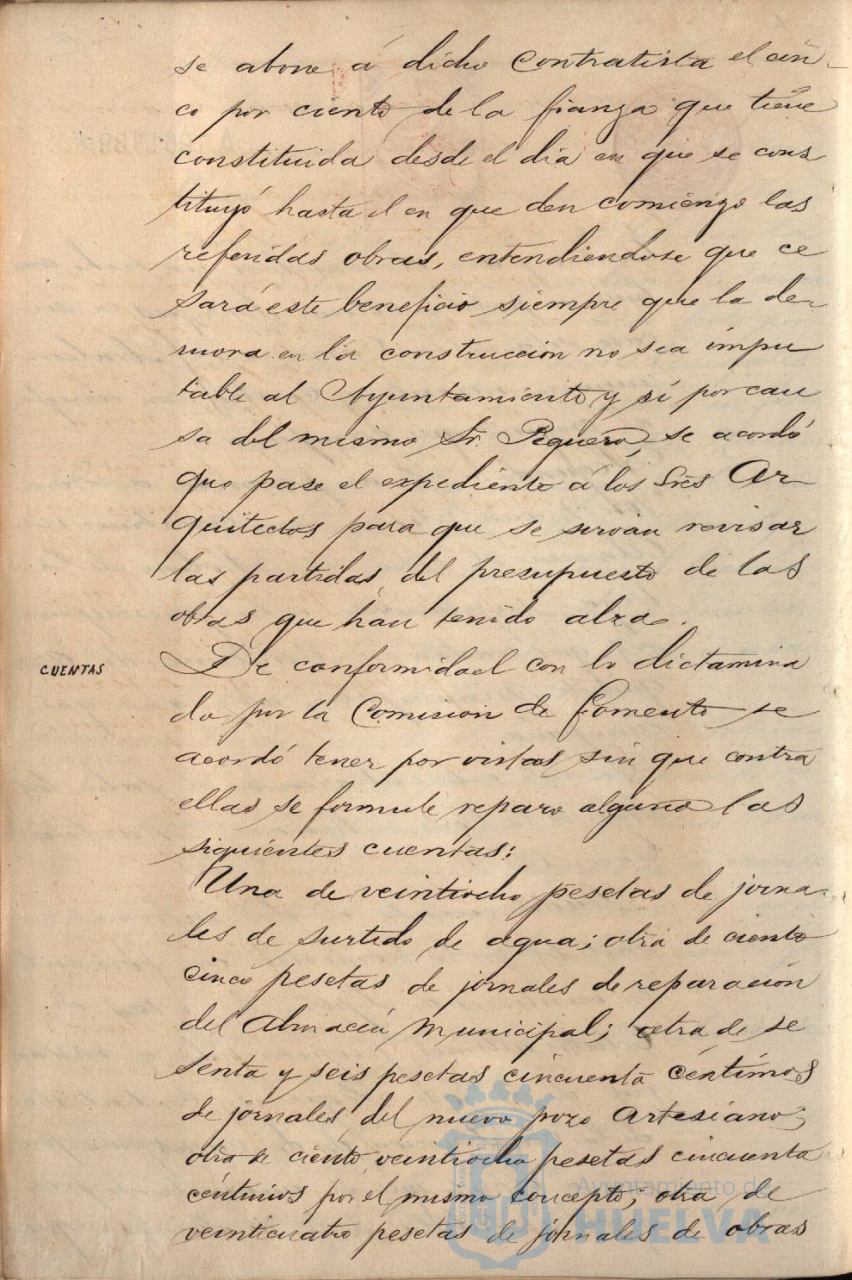 se abone á dicho Contratista el cin-
co por ciento de la fianza que tiene
constituida desde el dia en que se cons
tituyó hasta el en que den comienzo las
referidas obras, entendiendose que ce
sará este beneficio siempre que la de-
mora en la construcción no sea impu
table al Ayuntamiento y sí por cau
sa del mismo Sr. Peguero, se acordó
que pase el expediente á los Sres Ar-
quitectos para que se sirvan revisar
las partidas del presupuesto de las
obras que han tenido alza.
CUENTAS
De conformidad con lo dictamina
do por la Comisión de Fomento se
acordó tener por vistas sin que contra
ellas se formule reparo alguno las
siguientes cuentas:
Una de veintiocho pesetas de jorna-
les de surtido de agua; otra de ciento
cinco pesetas de jornales de reparación
del Almacén Municipal; otra de se
senta y seis pesetas cincuenta céntimos
de jornales del nuevo pozo Artesiano;
otra de ciento veintiocho pesetas cincuenta
céntimos por el mismo concepto; otra de
veinticuatro pesetas de jornales de obras
Ayuntamiento de
HUELVA